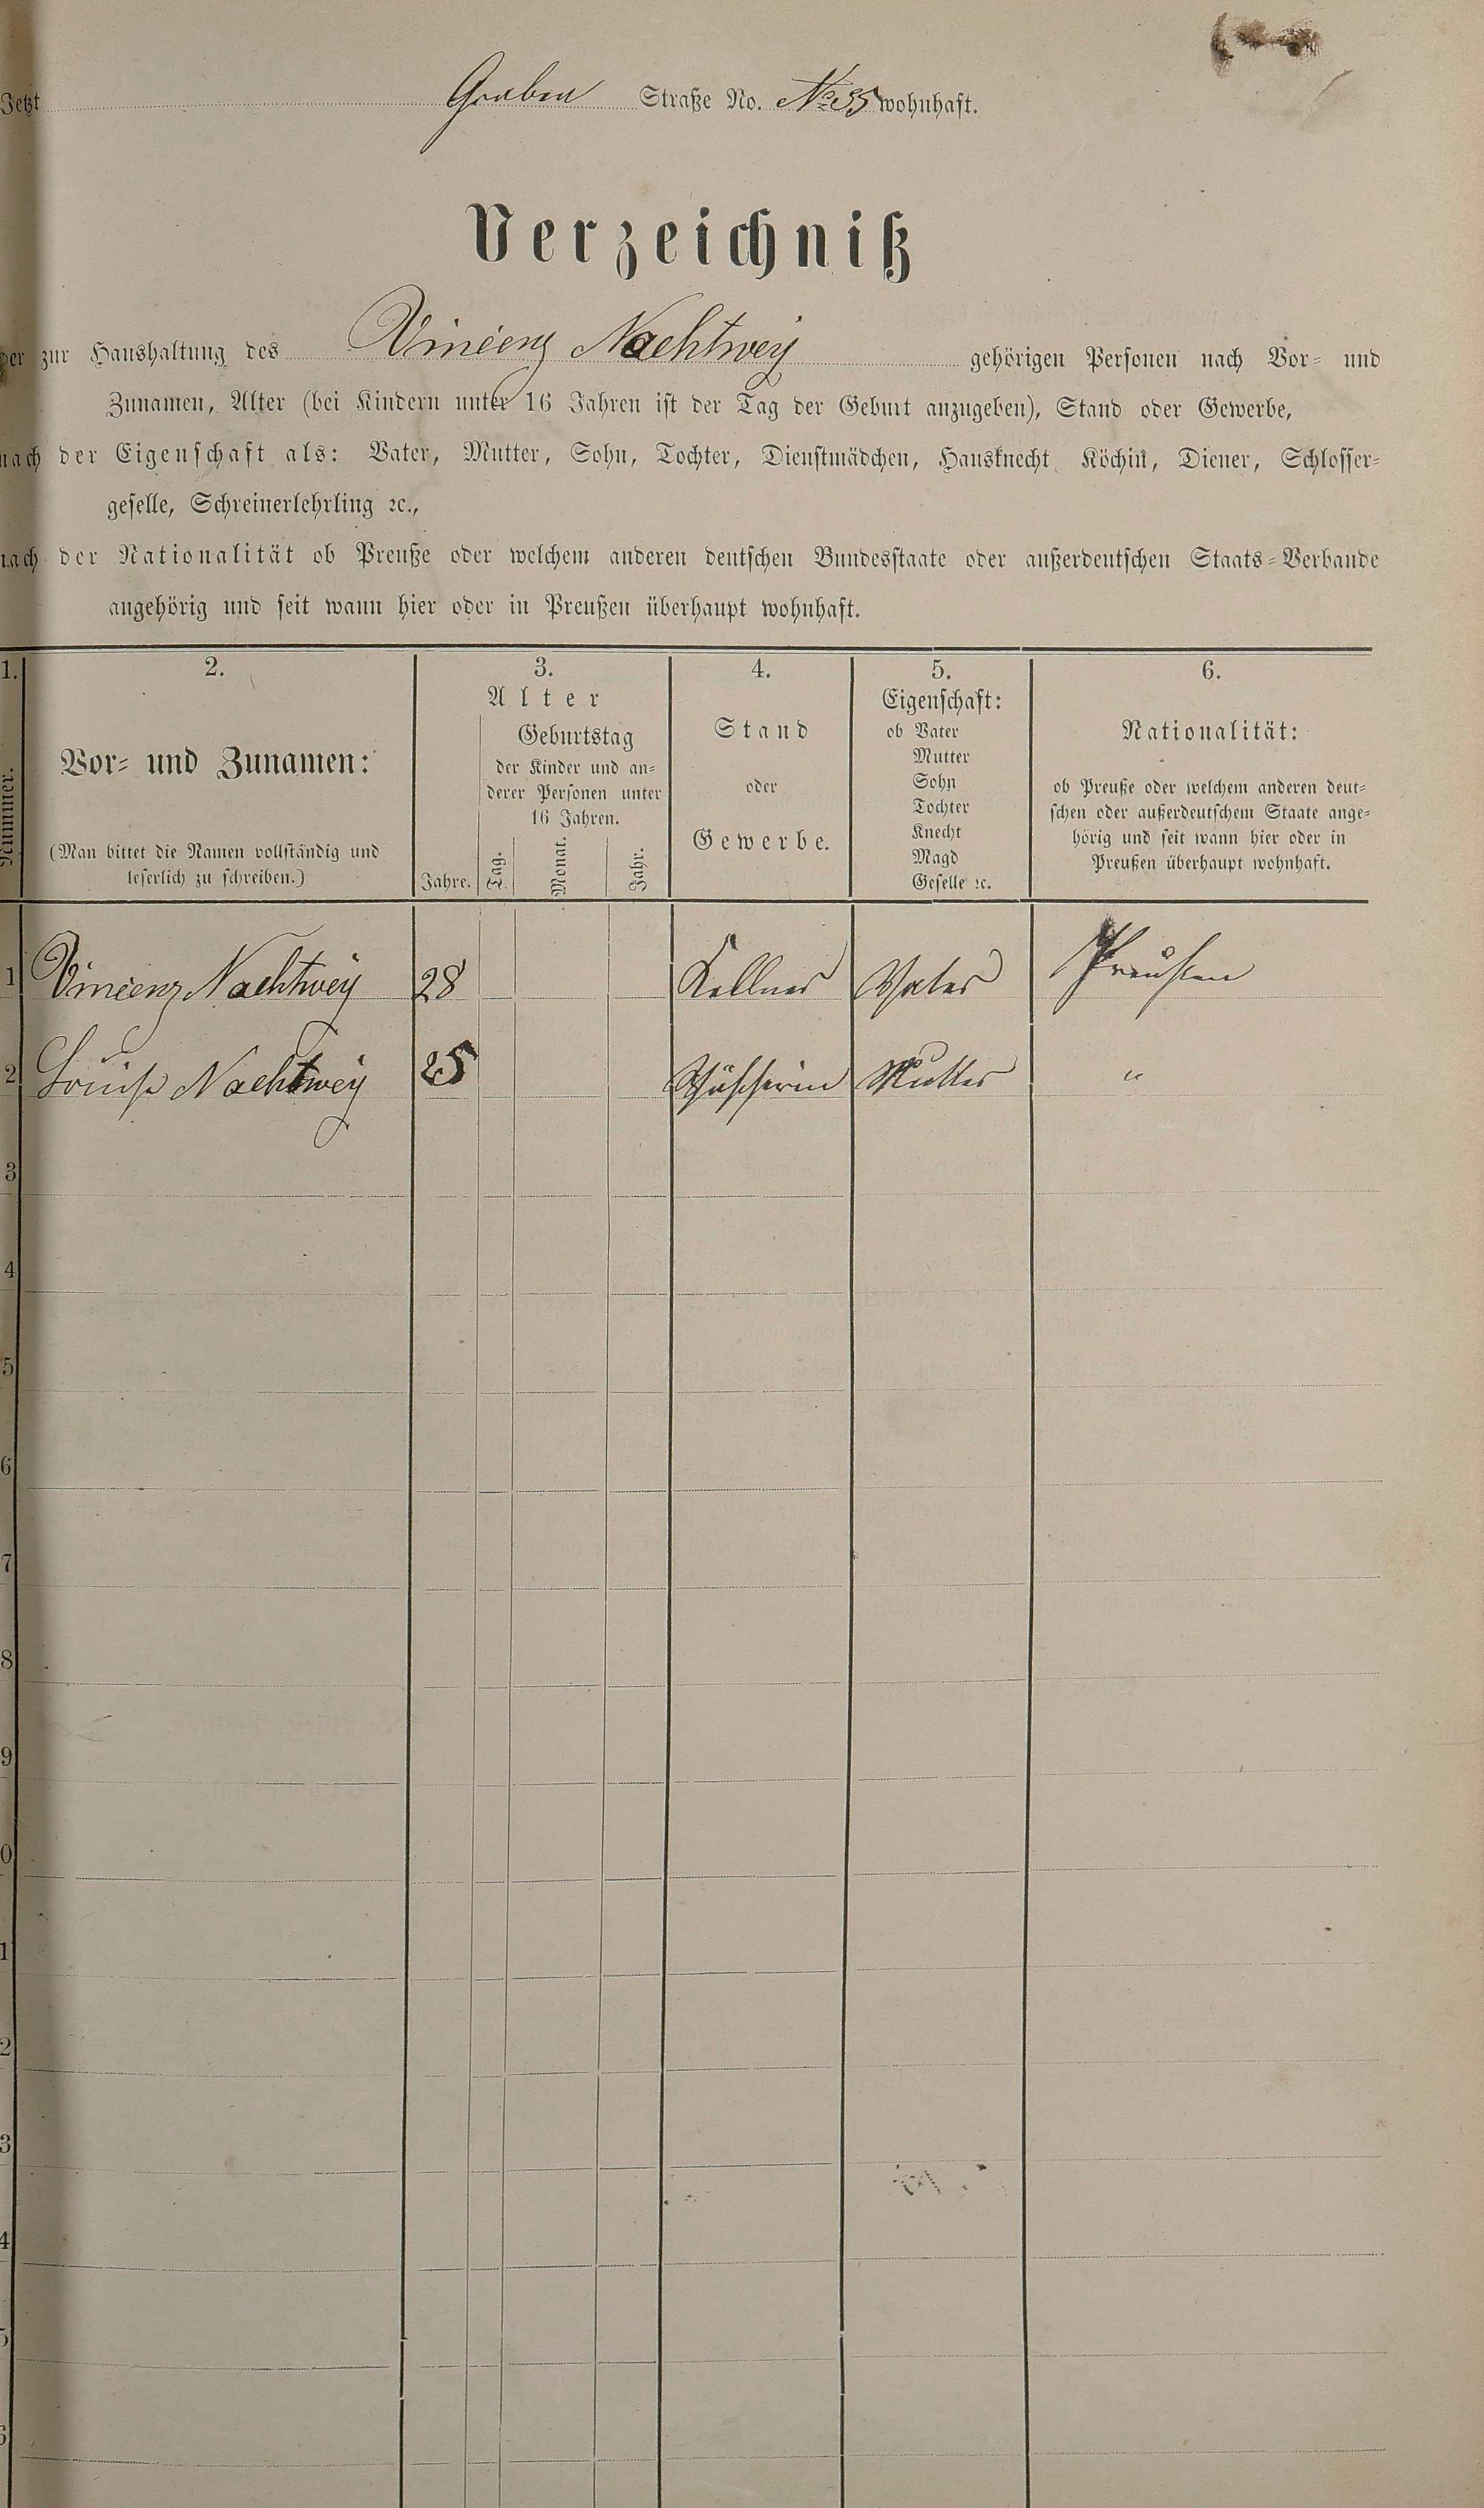 Jetzt Graben Straße No. No 35 wohnhaft.
Verzeichniß
der zur Haushaltung des Vincenz Nachtwey gehörigen Personen nach Vor- und
Zunamen, Alter (bei Kindern unter 16 Jahren ist der Tag der Geburt anzugeben), Stand oder Gewerbe,
nach der Eigenschaft als: Vater, Mutter, Sohn, Tochter, Dienstmädchen, Hausknecht, Köchin, Diener, Schlosser-
geselle, Schreinerlehrling ꝛc.,
nach der Nationalität ob Preuße oder welchem anderen deutschen Bundesstaate oder außerdeutschen Staats-Verbande
angehörig und seit wann hier oder in Preußen überhaupt wohnhaft.
1.
Nummer.
2.
Vor- und Zunamen:
(Man bittet die Namen vollständig und
leserlich zu schreiben.)
3.
Alter
Jahre.
Geburtstag
der Kinder und an-
derer Personen unter
16 Jahren.
Tag.
Monat.
Jahr.
4.
Stand
oder
Gewerbe.
5.
Eigenschaft:
ob Vater
Mutter
Sohn
Tochter
Knecht
Magd
Geselle ꝛc.
6.
Nationalität:
ob Preuße oder welchem anderen deut-
schen oder außerdeutschem Staate ange-
hörig und seit wann hier oder in
Preußen überhaupt wohnhaft.
1 Vincenz Nachtwey 28 Kellner Vater Preußen
2 Louise Nachtwey 25 Wäscherin Mutter "
3
4
5
6
7
8
9
0
1
2
3
4
5
6